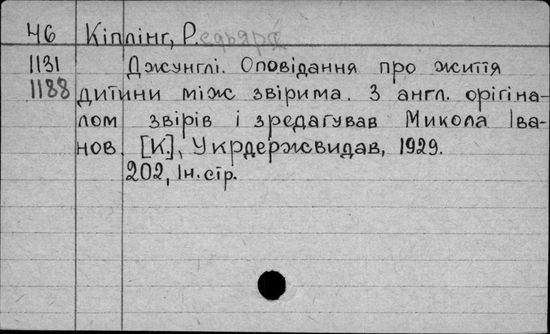 46 Кіплінг, Р.едьярд
1131 Джунглі. Оповідання про життя
1188 дитини між звірима. З англ. орігіна-
лом звірів і зредагував Микола Іва-
нов. [К.], Укрдержвидав, 1929.
202, Ін.стр.